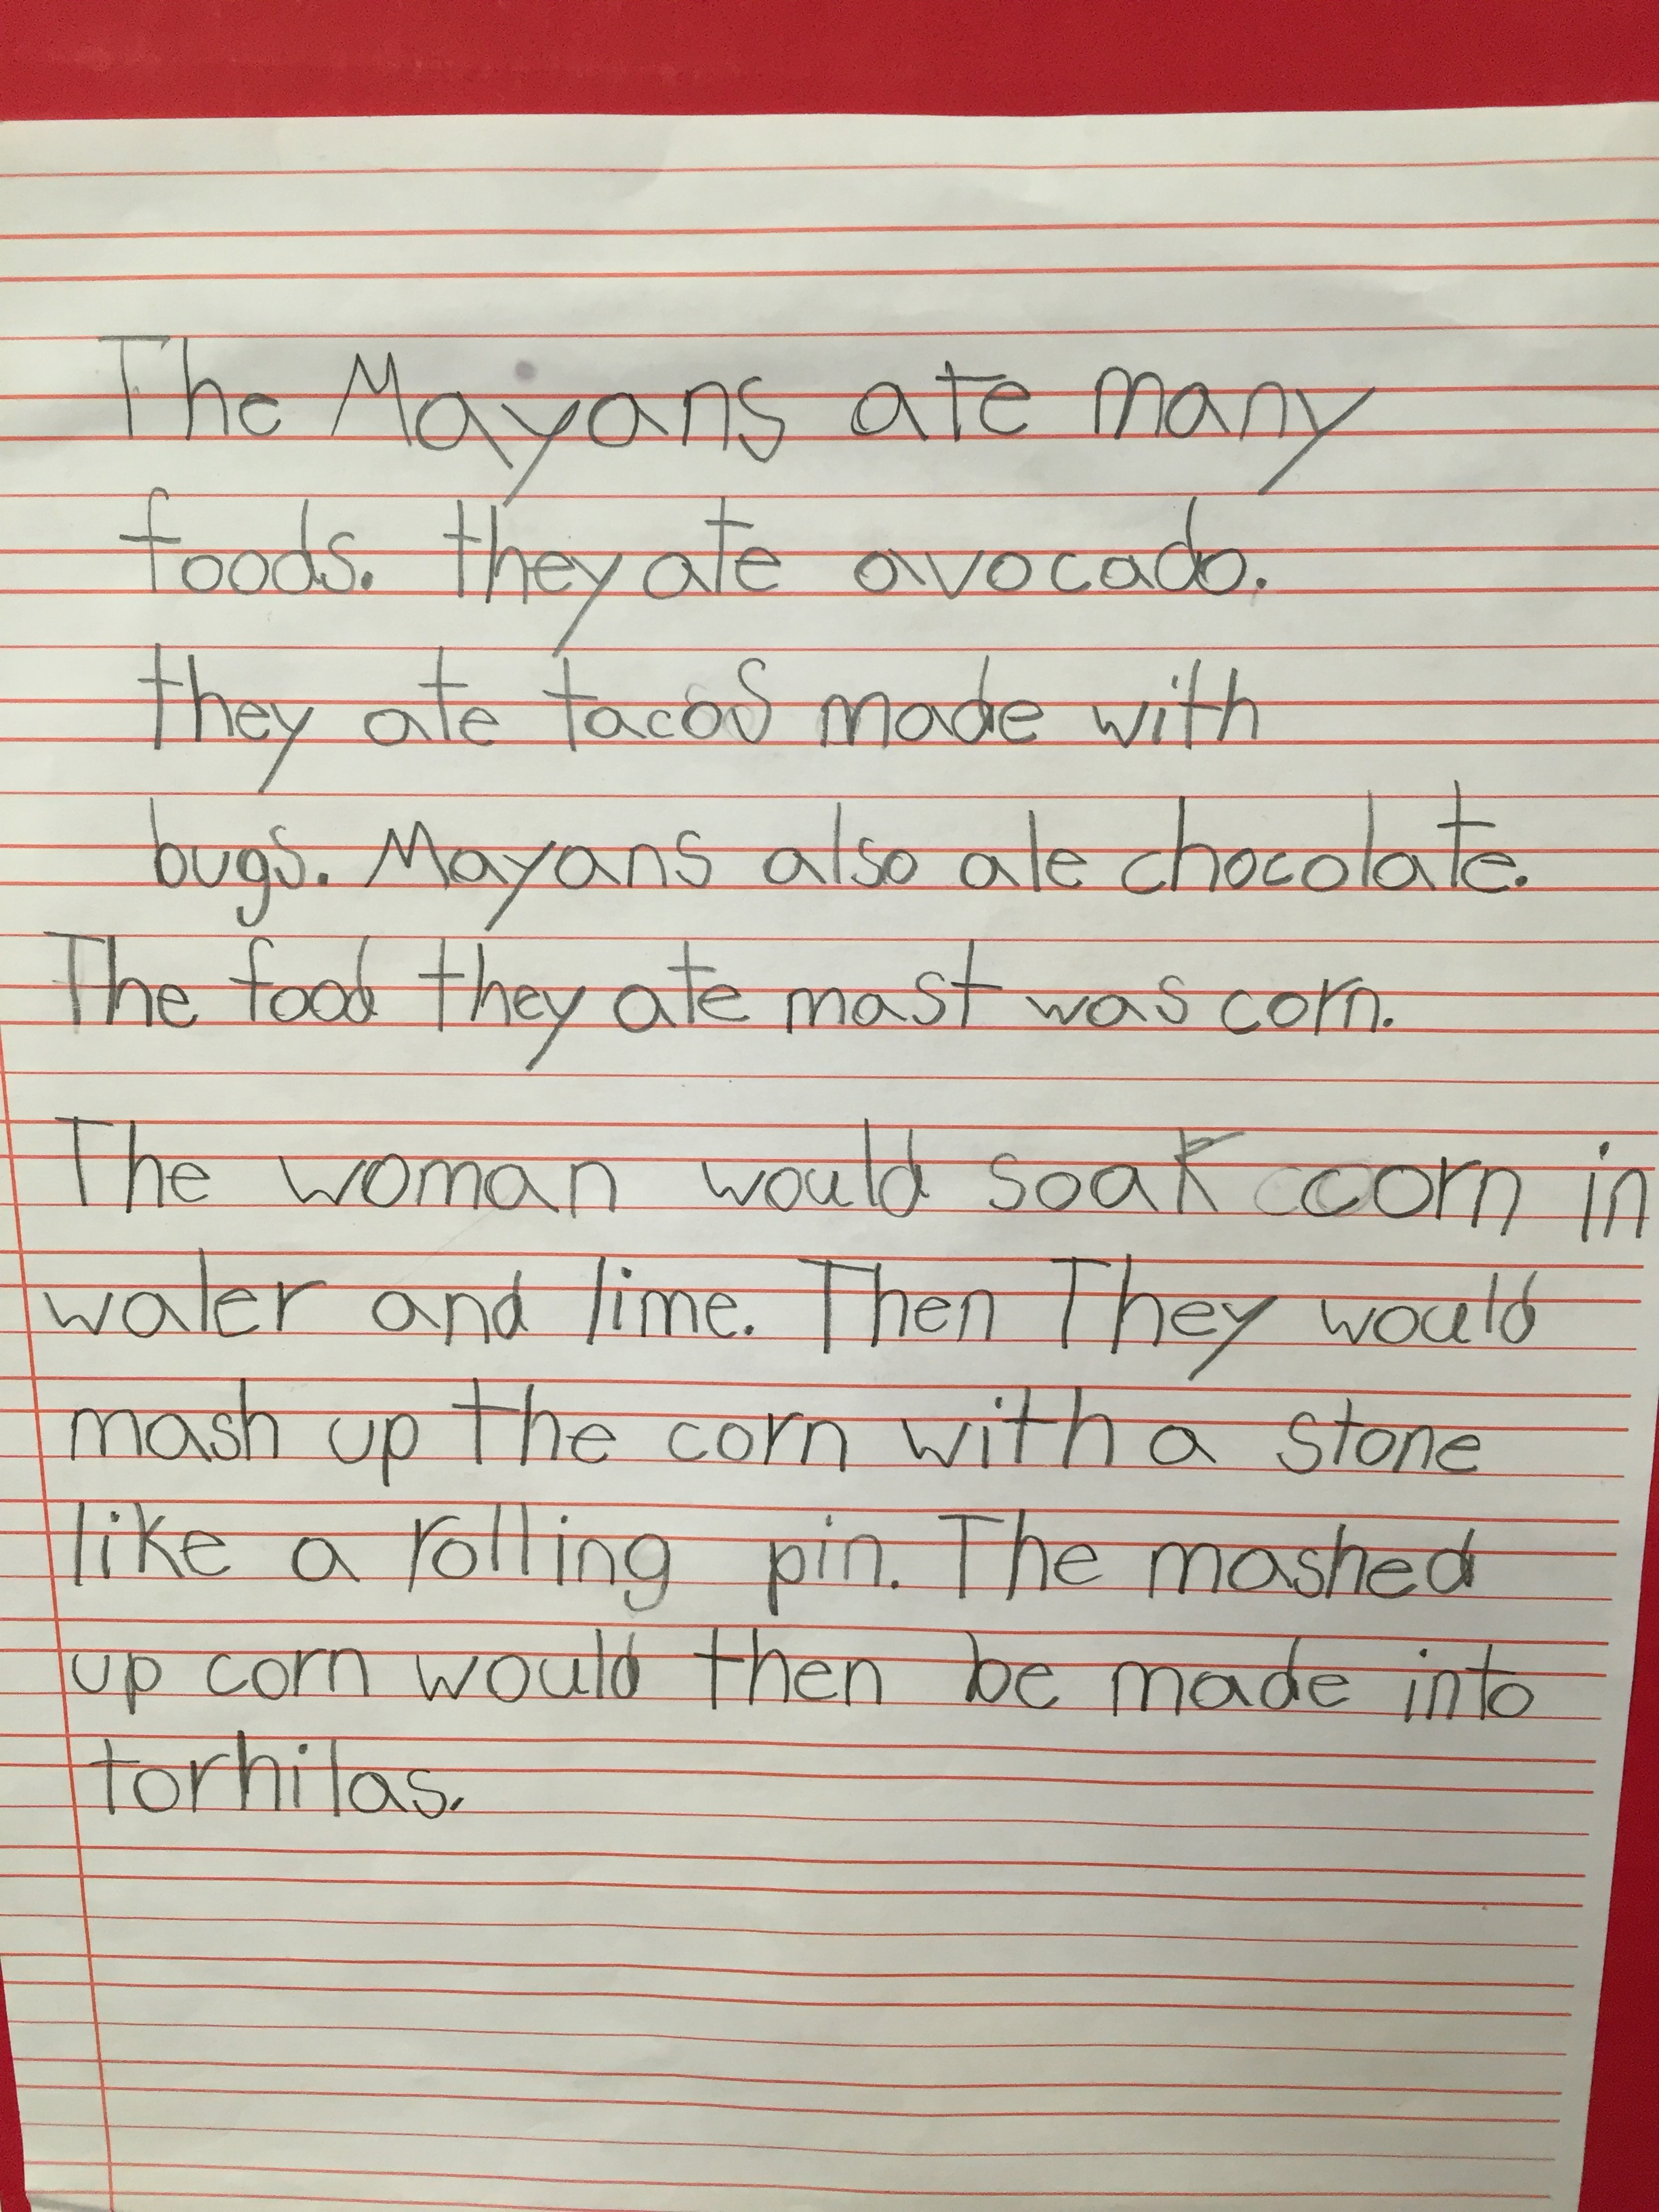 The Mayans ate many
foods. they ate avocado.
they ate tacos made with
bugs. Mayans also ale chocolate.
The food they ate mast was corn.
The woman would soak corn in
waler and lime. Then They would
mash up the corn with a stone
like a rolling pin. The mashed
up corn would then be made into
torhilas.